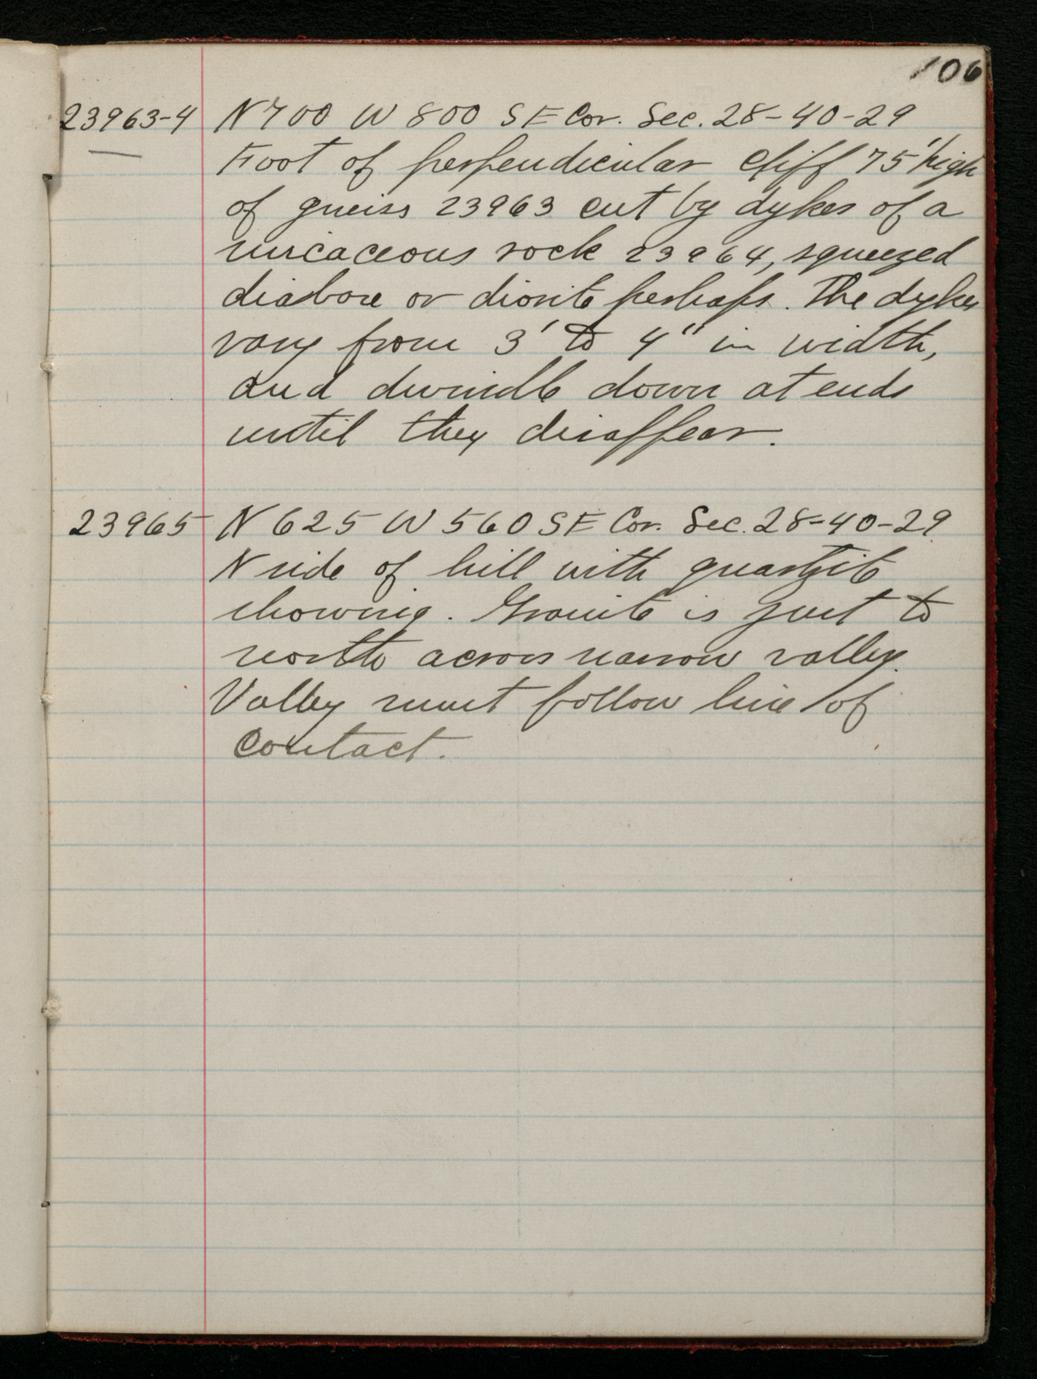 106
23963-4 N 700 W 800 SE Cor. Sec. 28-40-29
Foot of perpendicular cliff 75' high
of gneiss 23963 cut by dykes of a
micaceous rock 23964, squeezed
diabase or diorite perhaps. The dykes
vary from 3' to 4" in width,
and dwindle down at ends
until they disappear.
23965 N 625 W 560 SE Cor. Sec. 28-40-29
N side of hill with quartzite
showing. Granite is just to
north across narrow valley.
Valley must follow line of
contact.